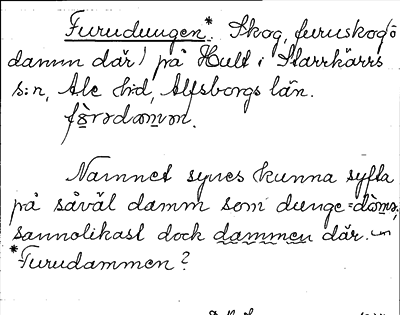 Furudungen*. Skog, furuskog (o
damm där) på Hult i Starrkärrs
s:n, Ale hd, Älfsborgs län.
fờrədam:ən.
Namnet synes kunna syfta
på såväl damm som dunge = 
sannolikast dock dammen där.
*Furudammen?